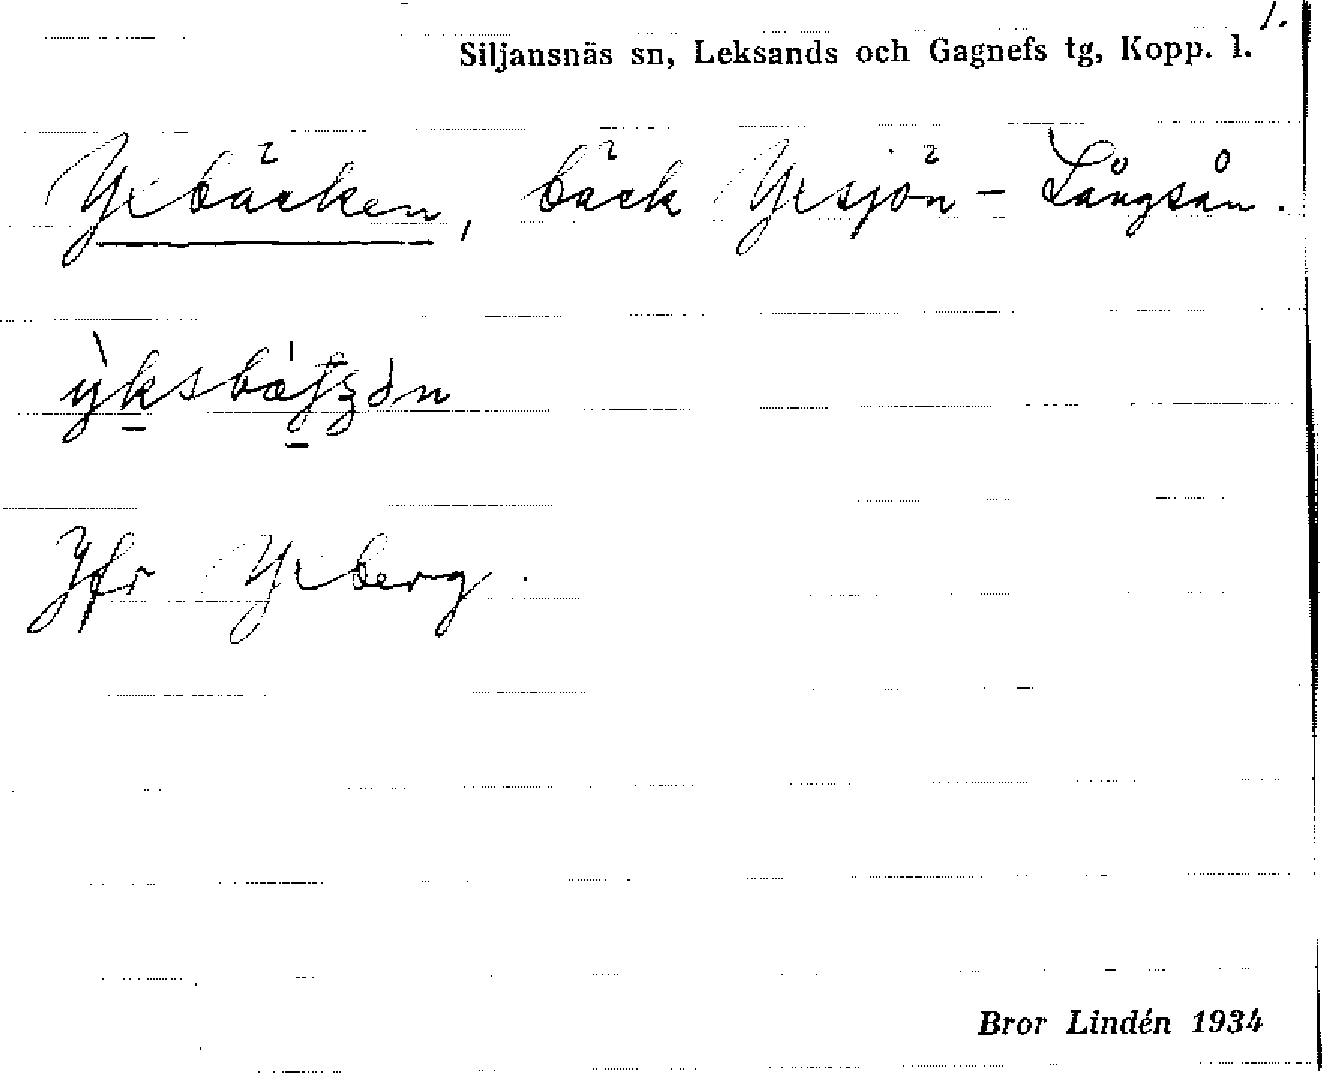 1.
Siljansnäs sn, Leksands och Gagnefs tg, Kopp. l.
Yxbäcken, bäck Yxsjön – Långsån.
Jfr Yxberg.
Bror Lindén 1934